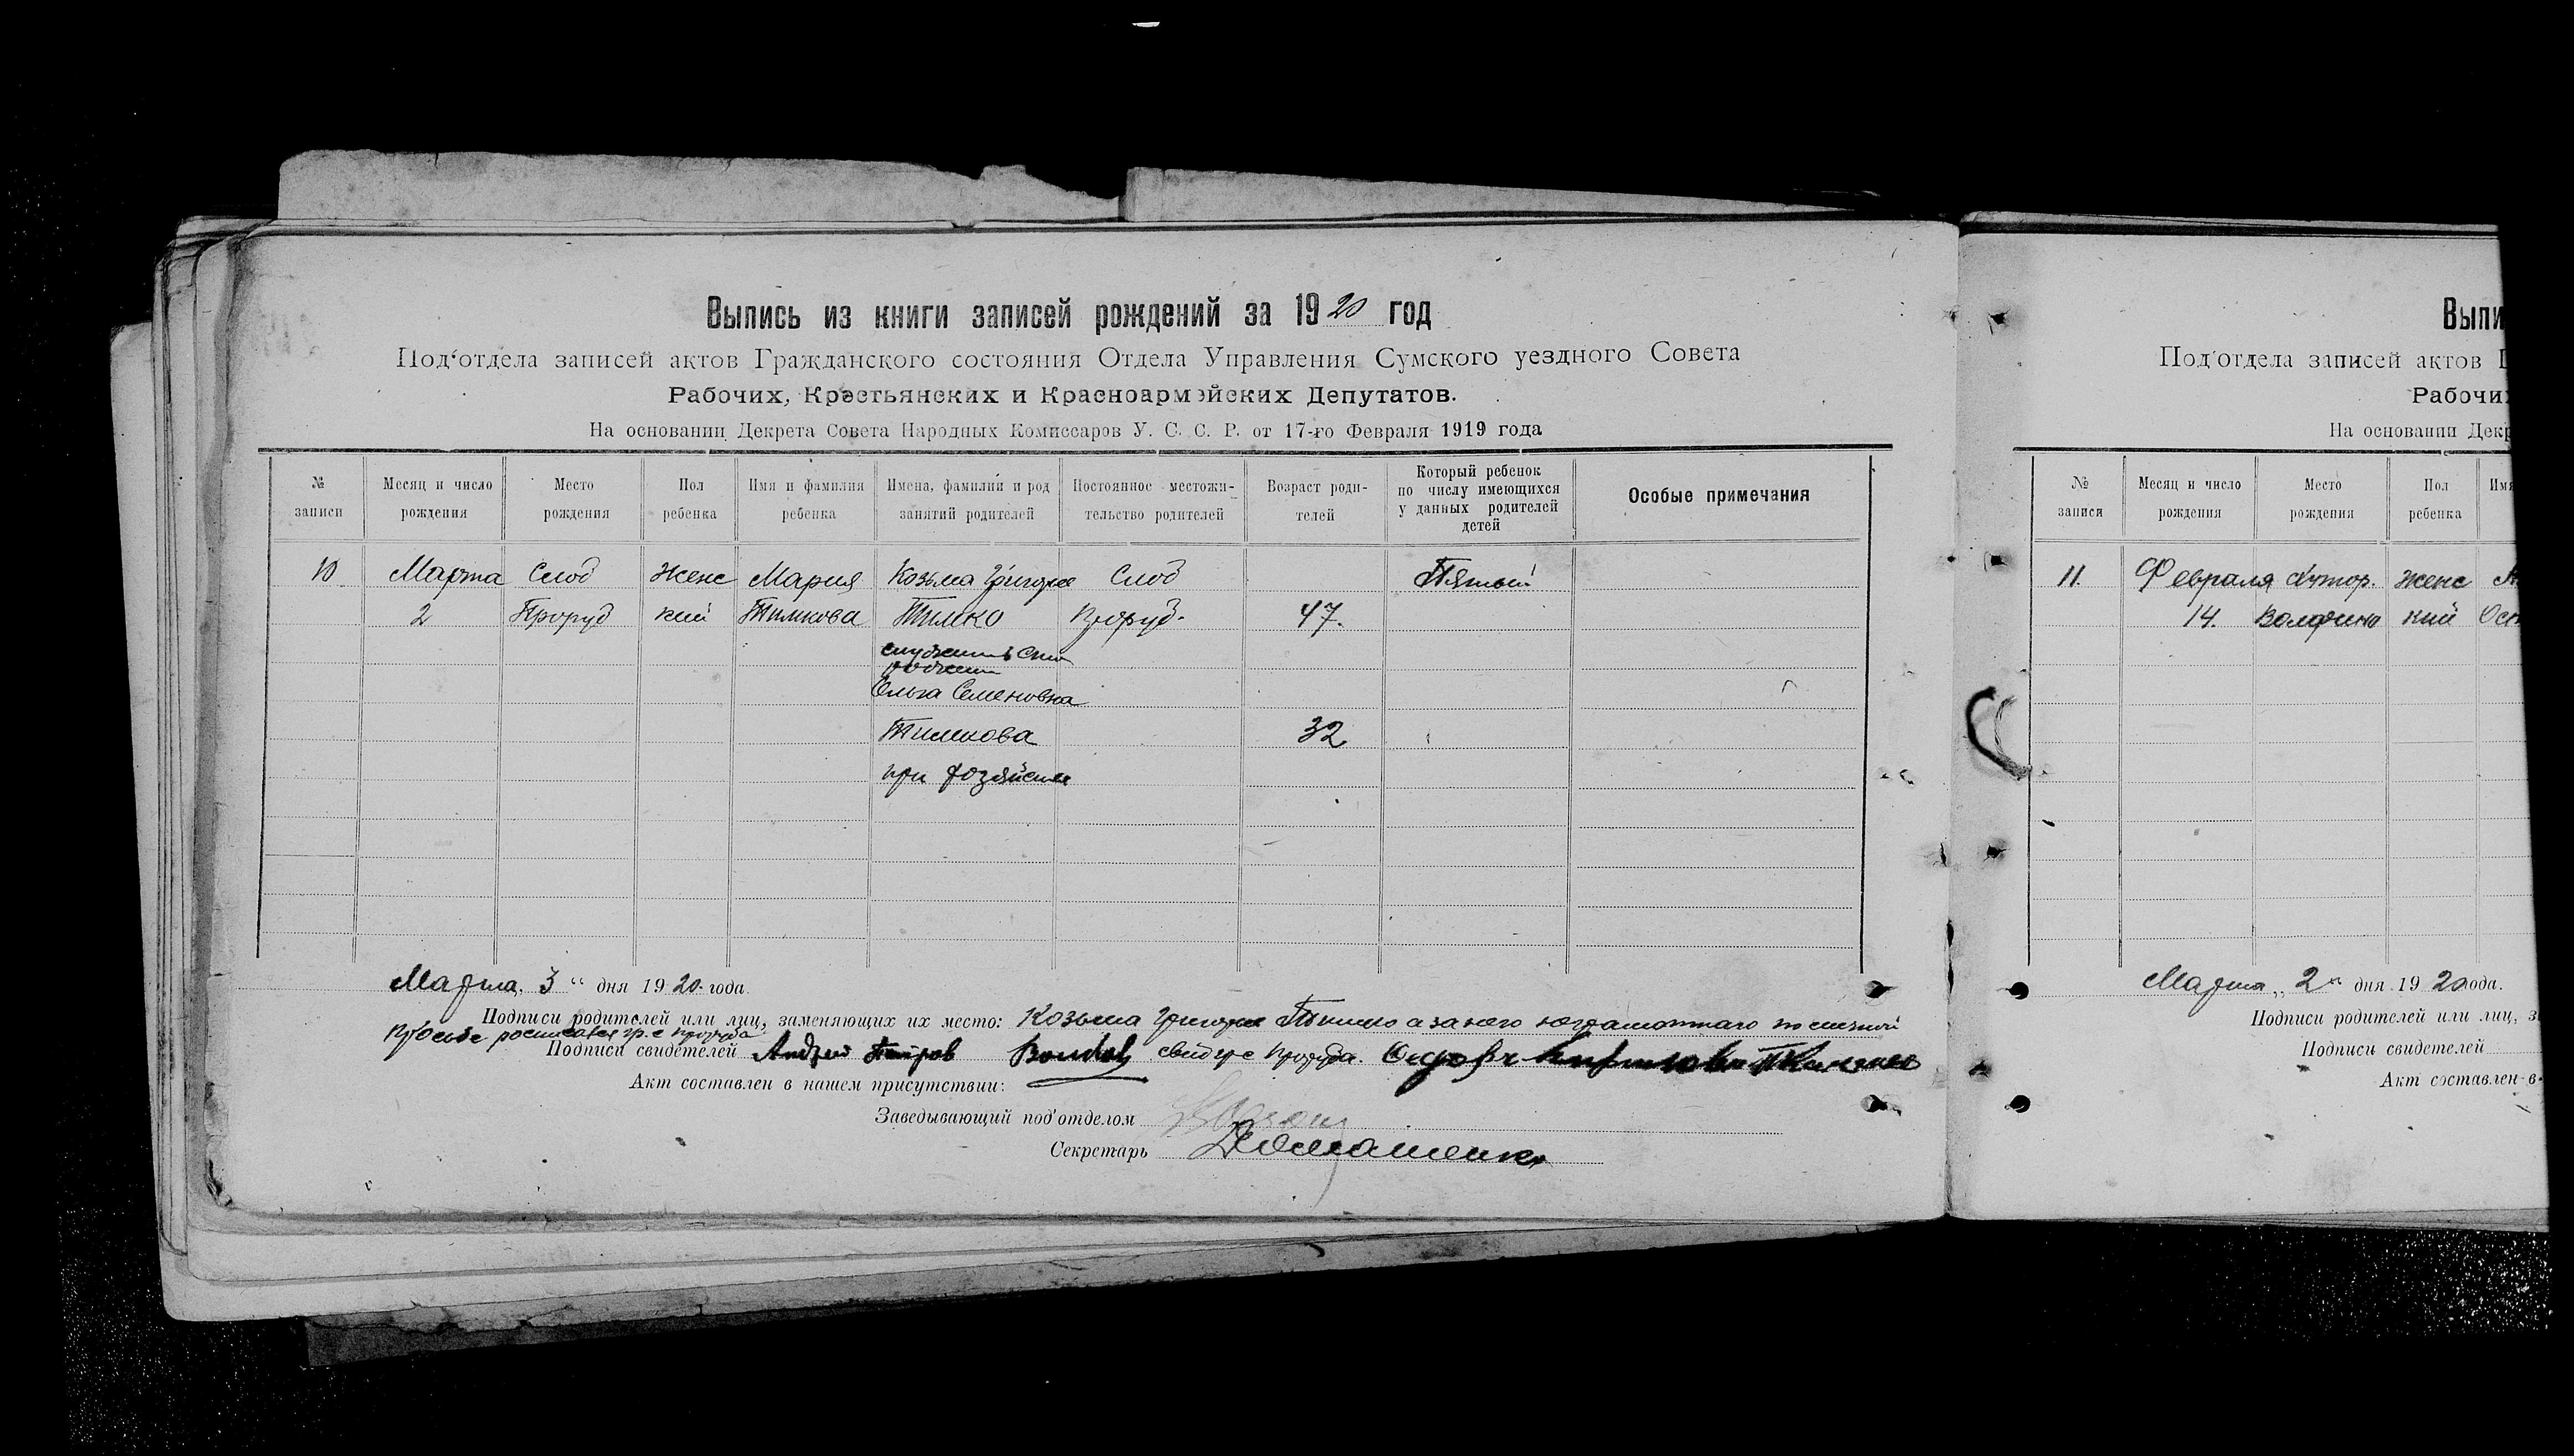 Выпись из книги записей рождений за 1920 год
Под'отдела записей актов Гражданского состояния Отдела Управления Сумского уездного Совета
Рабочих, Крестьянских и Красноармэйских Депутатов.
На основании Декрета Совета Народных Комиссаров У. С. С. Р. от 17-го Февраля 1919 года
№ записи
Месяц и число рождения
Место рождения
Пол ребенка
Имя и фамилия ребенка
Имена, фамилии и род занятий родителей
Постоянное местожи-тельство родителей
Возраст роди-телей
Который ребенок по числу имеющихся у данных родителей детей
Особые примечания
10 Марта Слод Женс Мария Козьма Григорев Слод Пятый
2 Проруд кий Тимкова Тимко Проруд. 47.
Ольга Семеновна
Тимкова 32
при хозяйстве
Марта, 3 " дня 1920 года
Подписи родителей или лиц, заменяющих их место: Козьма Григорев Тимко а за него неграмотнаго по личной
просьбе росписался гр. с Проруба
Подписи свидетелей Андрей Петров свид гр с Проруба.
Акт составлен в нашем присутствии:
Заведывающий под'отделом
Секретарь Домашенко
Выпи
Под'отдела записей актов Г
Рабочих
На основании Декр
№ записи
Месяц и число рождения
Место рождения
Пол ребенка
Имя
11 Февраля Хутор. Женс
14. Волфино кий
Марта „ 2 " дня 1920 ода.
Подписи родителей или лиц, за
Подписи свидетелей
Акт составлен в